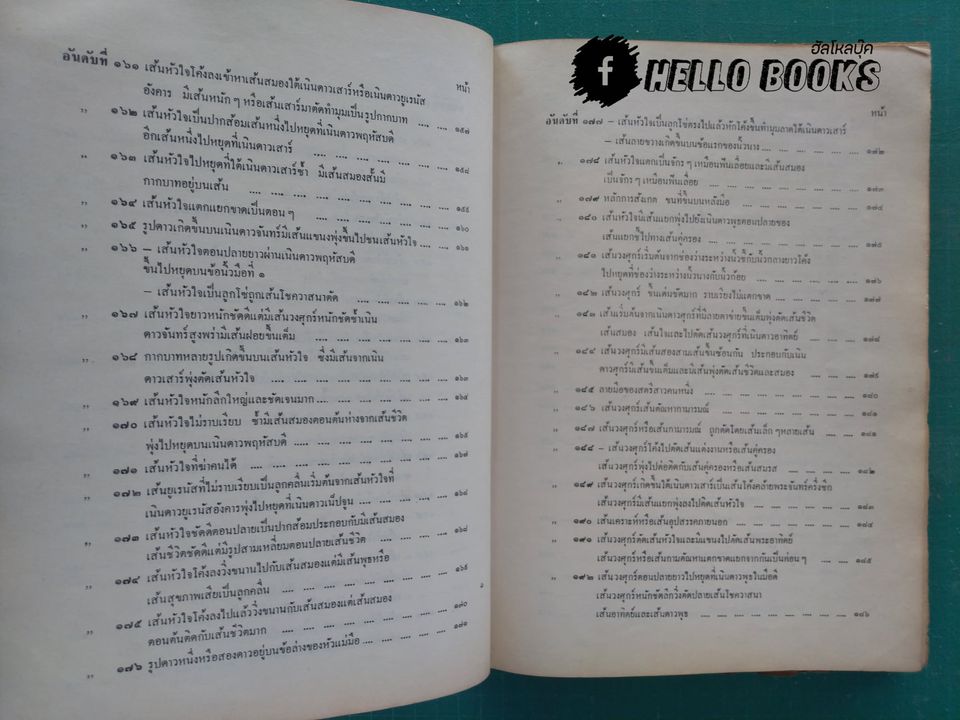 อันดับที่ ๑๖๑ เส้นหัวใจโค้งลงเข้าหาเส้นสมองใต้เนินดาวเสาร์หรือเนินดาวยูเรนัส หน้า
อังคาร มีเส้นหนัก ๆ หรือเส้นเสาร์มาตัดทำมุมเป็นรูปกากบาท .... .... ๑๕๗
,, ๑๖๒ เส้นหัวใจเป็นปากส้อมเส้นหนึ่งไปหยุดที่เนินดาวพฤหัสบดี
อีกเส้นหนึ่งไปหยุดที่เนินดาวเสาร์ .... .... .... .... .... .... ๑๕๘
,, ๑๖๓ เส้นหัวใจไปหยุดที่ใต้เนินดาวเสาร์ซ้ำ มีเส้นสมองสั้นมี
กากบาทอยู่บนเส้น .... .... .... .... .... .... .... .... ๑๕๙
,, ๑๖๔ เส้นหัวใจแตกแยกขาดเป็นตอน ๆ .... .... .... .... .... .... ๑๖๐
,, ๑๖๕ รูปดาวเกิดขึ้นบนเนินดาวจันทร์มีเส้นแขนงพุ่งขึ้นไปชนเส้นหัวใจ .... .... ๑๖๑
,, ๑๖๖ – เส้นหัวใจตอนปลายยาวผ่านเนินดาวพฤหัสบดี
ขึ้นไปหยุดบนข้อนิ้วมือที่ ๑
– เส้นหัวใจเป็นลูกโซ่ถูกเส้นโชควาสนาตัด .... .... .... .... .... ๑๖๒
,, ๑๖๗ เส้นหัวใจยาวหนักชัดดีแต่มีเส้นวงศุกร์หนักชัดซ้ำเนิน
ดาวจันทร์สูงพร่ามีเส้นฝอยขึ้นเต็ม .... .... .... .... .... .... ๑๖๓
,, ๑๖๘ กากบาทหลายรูปเกิดขึ้นบนเส้นหัวใจ ซึ่งมีเส้นจากเนิน
ดาวเสาร์พุ่งตัดเส้นหัวใจ .... .... .... .... .... .... .... ๑๖๓
,, ๑๖๙ เส้นหัวใจหนักลึกใหญ่และชัดเจนมาก .... .... .... .... .... .... ๑๖๔
,, ๑๗๐ เส้นหัวใจไม่ราบเรียบ ซ้ำมีเส้นสมองตอนต้นห่างจากเส้นชีวิต
พุ่งไปหยุดบนเนินดาวพฤหัสบดี .... .... .... .... .... .... .... ๑๖๕
,, ๑๗๑ เส้นหัวใจที่ฆ่าคนได้ .... .... .... .... .... .... .... .... ๑๖๗
,, ๑๗๒ เส้นยูเรนัสที่ไม่ราบเรียบเป็นลูกคลื่นเริ่มต้นจากเส้นหัวใจที่
เนินดาวยูเรนัสอังคารพุ่งไปหยุดที่เนินดาวเนปจูน .... .... .... .... ๑๖๘
,, ๑๗๓ เส้นหัวใจชัดดีตอนปลายเป็นปากส้อมประกอบกับมีเส้นสมอง
เส้นชีวิตชัดดีแต่มีรูปสามเหลี่ยมตอนปลายเส้นชีวิต .... .... .... .... ๑๖๘
,, ๑๗๔ เส้นหัวใจโค้งลงวิ่งขนานไปกับเส้นสมองแต่มีเส้นพุธหรือ
เส้นสุขภาพเสียเป็นลูกคลื่น .... .... .... .... .... .... .... ๑๖๙
,, ๑๗๕ เส้นหัวใจโค้งลงไปแล้ววิ่งขนานกับเส้นสมองแต่เส้นสมอง
ตอนต้นติดกับเส้นชีวิตมาก .... .... .... .... .... .... .... ๑๗๐
,, ๑๗๖ รูปดาวหนึ่งหรือสองดาวอยู่บนข้อล่างของหัวแม่มือ .... .... .... .... ๑๗๑
ฮัลโหลบุ๊ค
f HELLO BOOKS
หน้า
อันดับที่ ๑๗๗ – เส้นหัวใจเป็นลูกโซ่ตรงไปแล้วหักโค้งขึ้นทำมุมฉากใต้เนินดาวเสาร์
– เส้นลายขวางเกิดขึ้นบนข้อแรกของนิ้วนาง .... .... .... .... .... ๑๗๒
,, ๑๗๘ เส้นหัวใจแตกเป็นจักร ๆ เหมือนฟันเลื่อยและมีเส้นสมอง
เป็นจักร ๆ เหมือนฟันเลื่อย .... .... .... .... .... .... .... ๑๗๓
,, ๑๗๙ หลักการสังเกต ขนที่ขึ้นบนหลังมือ .... .... .... .... .... .... ๑๗๔
,, ๑๘๐ เส้นหัวใจมีเส้นแยกพุ่งไปยังเนินดาวพุธตอนปลายของ
เส้นแยกชี้ไปทางเส้นคู่ครอง .... .... .... .... .... .... .... ๑๗๕
,, ๑๘๑ เส้นวงศุกร์เริ่มต้นจากช่องว่างระหว่างนิ้วชี้กับนิ้วกลางยาวโค้ง
ไปหยุดที่ช่องว่างระหว่างนิ้วนางกับนิ้วก้อย .... .... .... .... .... ๑๗๖
,, ๑๘๒ เส้นวงศุกร์ ขึ้นเด่นชัดมาก ราบเรียงไม่แตกขาด .... .... .... .... ๑๗๗
,, ๑๘๓ เส้นเริ่มต้นจากเนินดาวศุกร์ที่มีลายตาข่ายขึ้นเต็มพุ่งตัดเส้นชีวิต
เส้นสมอง เส้นใจและไปตัดเส้นวงศุกร์ที่เนินดาวอาทิตย์ .... .... .... ๑๗๘
,, ๑๘๔ เส้นวงศุกร์มีเส้นสองสามเส้นขึ้นซ้อนกัน ประกอบกับเนิน
ดาวศุกร์มีเส้นขึ้นเต็มและมีเส้นพุ่งตัดเส้นชีวิตและสมอง .... .... .... ๑๗๙
,, ๑๘๕ ลายมือของสตรีสาวคนหนึ่ง .... .... .... .... .... .... .... ๑๘๐
,, ๑๘๖ เส้นวงศุกร์เส้นตัณหากามารมณ์ .... .... .... .... .... .... ๑๘๑
,, ๑๘๗ เส้นวงศุกร์หรือเส้นกามารมณ์ ถูกตัดโดยเส้นเล็ก ๆ หลายเส้น .... .... ๑๘๑
,, ๑๘๘ – เส้นวงศุกร์โค้งไปตัดเส้นแต่งงานหรือเส้นคู่ครอง
เส้นวงศุกร์พุ่งไปต่อติดกับเส้นคู่ครองหรือเส้นสมรส .... .... .... .... ๑๘๒
,, ๑๘๙ เส้นวงศุกร์เกิดขึ้นใต้เนินดาวเสาร์เป็นเส้นโค้งคล้ายพระจันทร์ครึ่งซีก
เส้นวงศุกร์มีเส้นแยกพุ่งลงไปตัดเส้นหัวใจ .... .... .... .... .... ๑๘๓
,, ๑๙๐ เส้นเคราะห์หรือเส้นอุปสรรคภายนอก .... .... .... .... .... .... ๑๘๔
,, ๑๙๑ เส้นวงศุกร์ตัดเส้นหัวใจและมีแขนงไปตัดเส้นพระอาทิตย์
เส้นวงศุกร์หรือเส้นกามตัณหาแตกขาดแยกจากกันเป็นท่อน ๆ .... .... ๑๘๕
,, ๑๙๒ เส้นวงศุกร์ตอนปลายยาวไปหยุดที่เนินดาวพุธในมือดี
เส้นวงศุกร์หนักชัดลึกวิ่งตัดปลายเส้นโชควาสนา
เส้นอาทิตย์และเส้นดาวพุธ .... .... .... .... .... .... .... ๑๘๖